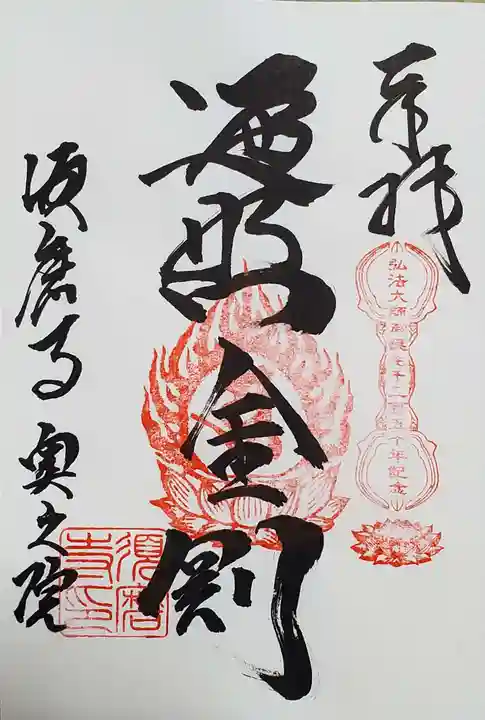 奉拝
弘法大師御誕生千二百五十年記念
遍照金剛
須磨寺 奥之院
須磨寺印